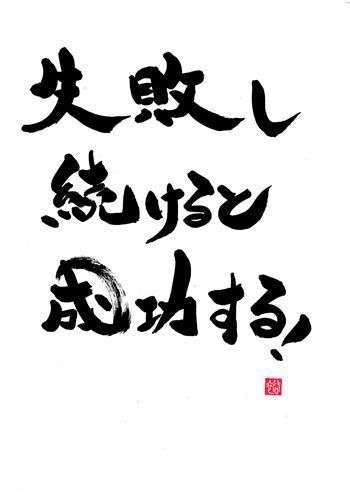 失敗し
続けると
成功する!